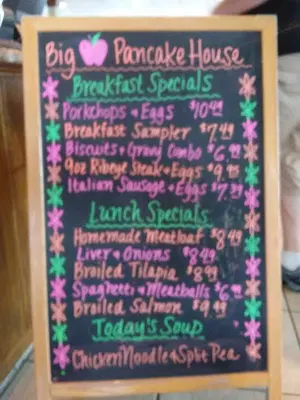 Big Pancake House
Breakfast Specials
Porkchops + Eggs $10.49
Breakfast Sampler $7.49
Biscuits + Gravy Combo $6.49
9oz Ribeye Steak + Eggs $9.95
Italian Sausage + Eggs
Lunch Specials
Homemade Meatloaf $8.49
Liver + Onions $8.49
Broiled Tilapia $8.99
Spaghetti + Meatballs
Broiled Salmon $9.49
Today's Soup
Chicken Noodle + Split Pea